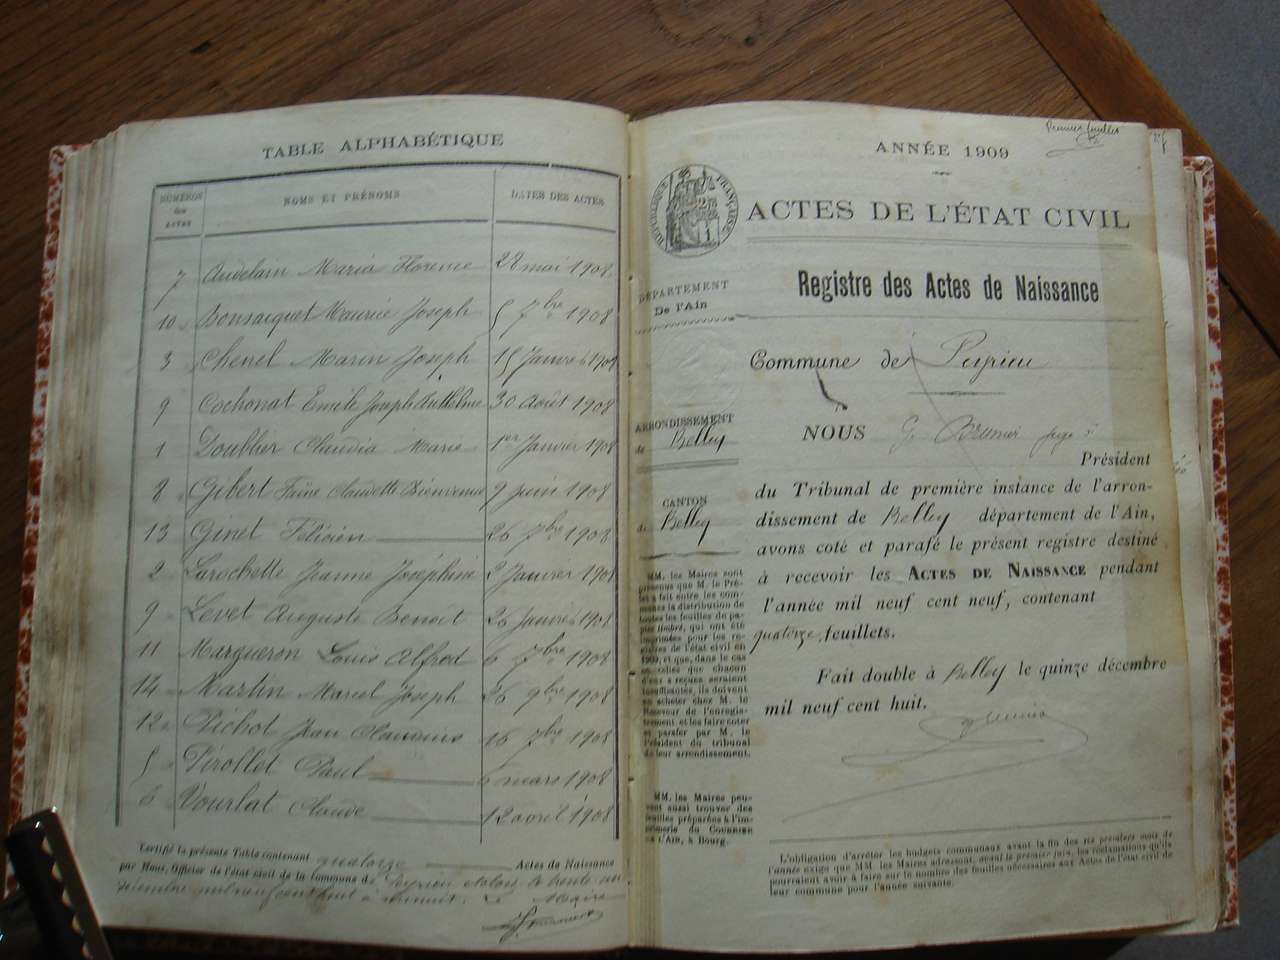 TABLE ALPHABÉTIQUE
NUMÉROS des ACTES
NOMS ET PRÉNOMS
DATES DES ACTES
7 Audelain Maria Florence 28 mai 1908
10 Bonsacquet Maurice Joseph 5 7bre 1908
3 Chenel Marin Joseph 15 Janvier 1908
9 Cochonat Emile Joseph Anthelme 30 Août 1908
1 Doublier Claudia Marie 1er Janvier 1908
8 Gibert Claudette Bienvenue 9 Juin 1908
13 Ginet Félicien 26 7bre 1908
2 Larochette Jeanne Joséphine 2 Janvier 1908
9 Levet Auguste Benoit 26 Janvier 1908
11 Margueron Louis Alfred 6 7bre 1908
14 Martin Marcel Joseph 26 9bre 1908
12 Pichot Jean 16 7bre 1908
5 Pirollet Paul 6 mars 1908
6 Vourlat Claude 12 avril 1908
Certifié la présente Table contenant quatorze Actes de Naissance
par Nous, Officier de l'état civil de la commune de Peyrieu
mil neuf cent huit à minuit. Le Maire
ANNÉE 1909
RÉPUBLIQUE FRANÇAISE
ACTES DE L'ÉTAT CIVIL
Registre des Actes de Naissance
DÉPARTEMENT
De l'Ain
Commune de Peyrieu
ARRONDISSEMENT
de Belley
NOUS G. Brunier juge
Président
CANTON
de Belley
du Tribunal de première instance de l'arron-
dissement de Belley département de l'Ain,
avons coté et parafé le présent registre destiné
à recevoir les ACTES DE NAISSANCE pendant
l'année mil neuf cent neuf, contenant
quatorze feuillets.
Fait double à Belley le quinze décembre
mil neuf cent huit.
MM. les Maires sont
prévenus que M. le Pré-
fet a fait entre les com-
munes la distribution de
toutes les feuilles de pa-
pier timbré, qui ont été
imprimées pour les re-
gistres de l'état civil en
1909, et que, dans le cas
où celles que chacun
d'eux a reçues seraient
insuffisantes, ils doivent
en acheter chez M. le
Receveur de l'enregis-
trement et les faire coter
et parafer par M. le
Président du tribunal
de leur arrondissement.
MM. les Maires peu-
vent aussi trouver des
feuilles préparées à l'im-
primerie du COURRIER
DE L'AIN, à Bourg.
L'obligation d'arrêter les budgets communaux avant la fin des six premiers mois de
l'année exige que MM. les Maires adressent, avant le premier juin, les réclamations qu'ils
pourraient avoir à faire sur le nombre des feuilles nécessaires aux Actes de l'état civil de
leur commune pour l'année suivante.